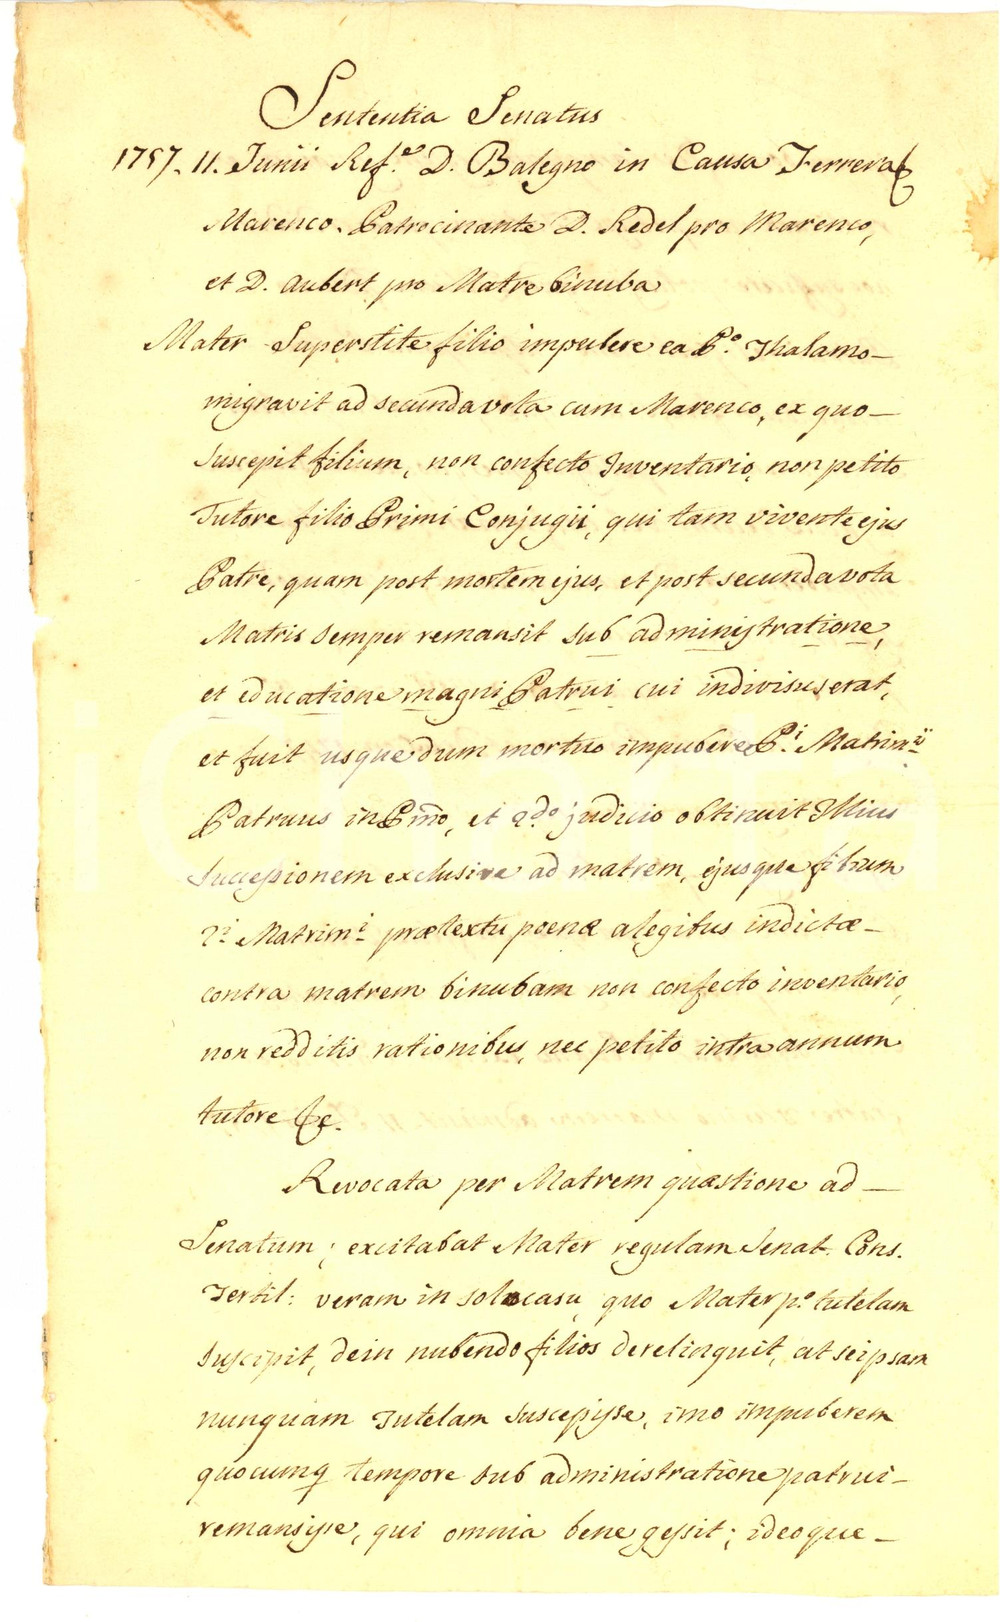 Sententia Senatus
1757. 11. Junii Ref.e D. Balegno in Causa Ferrera &
Marenco. Patrocinante D. Redel pro Marenco,
et D. Aubert pro Matre binuba
Mater Superstite filio impubere ea P.o Thalamo-
migravit ad secunda vota cum Marenco, ex quo-
Suscepit filium, non confecto Inventario, non petito
Tutore filio Primi Conjugii, qui tam vivente ejus
Patre, quam post mortem ejus, et post secunda vota
Matris semper remansit sub administratione,
et educatione magni Patrui cui indivisus erat,
et fuit usque dum mortuo impubere P.i Matrim.ii
Patruus in Pmo, et 2do judicio obtinuit Illius
Successionem exclusive ad matrem, ejusque filium
2.i Matrim.i prætextu poenæ a legibus indictæ-
contra matrem binubam non confecto inventario,
non redditis rationibus, nec petito intra annum
tutore &c.
Revocata per Matrem quæstione ad-
Senatum; excitabat Mater regulam Senat. Cons.
Tertil: veram in solo casu, quo Mater p.o tutelam
Suscipit, dein nubendo filios derelinquit, at seipsam
nunquam Tutelam suscepisse, imo impuberem
quocumq tempore sub administratione patrui-
remansisse, qui omnia bene gessit; ideoque-